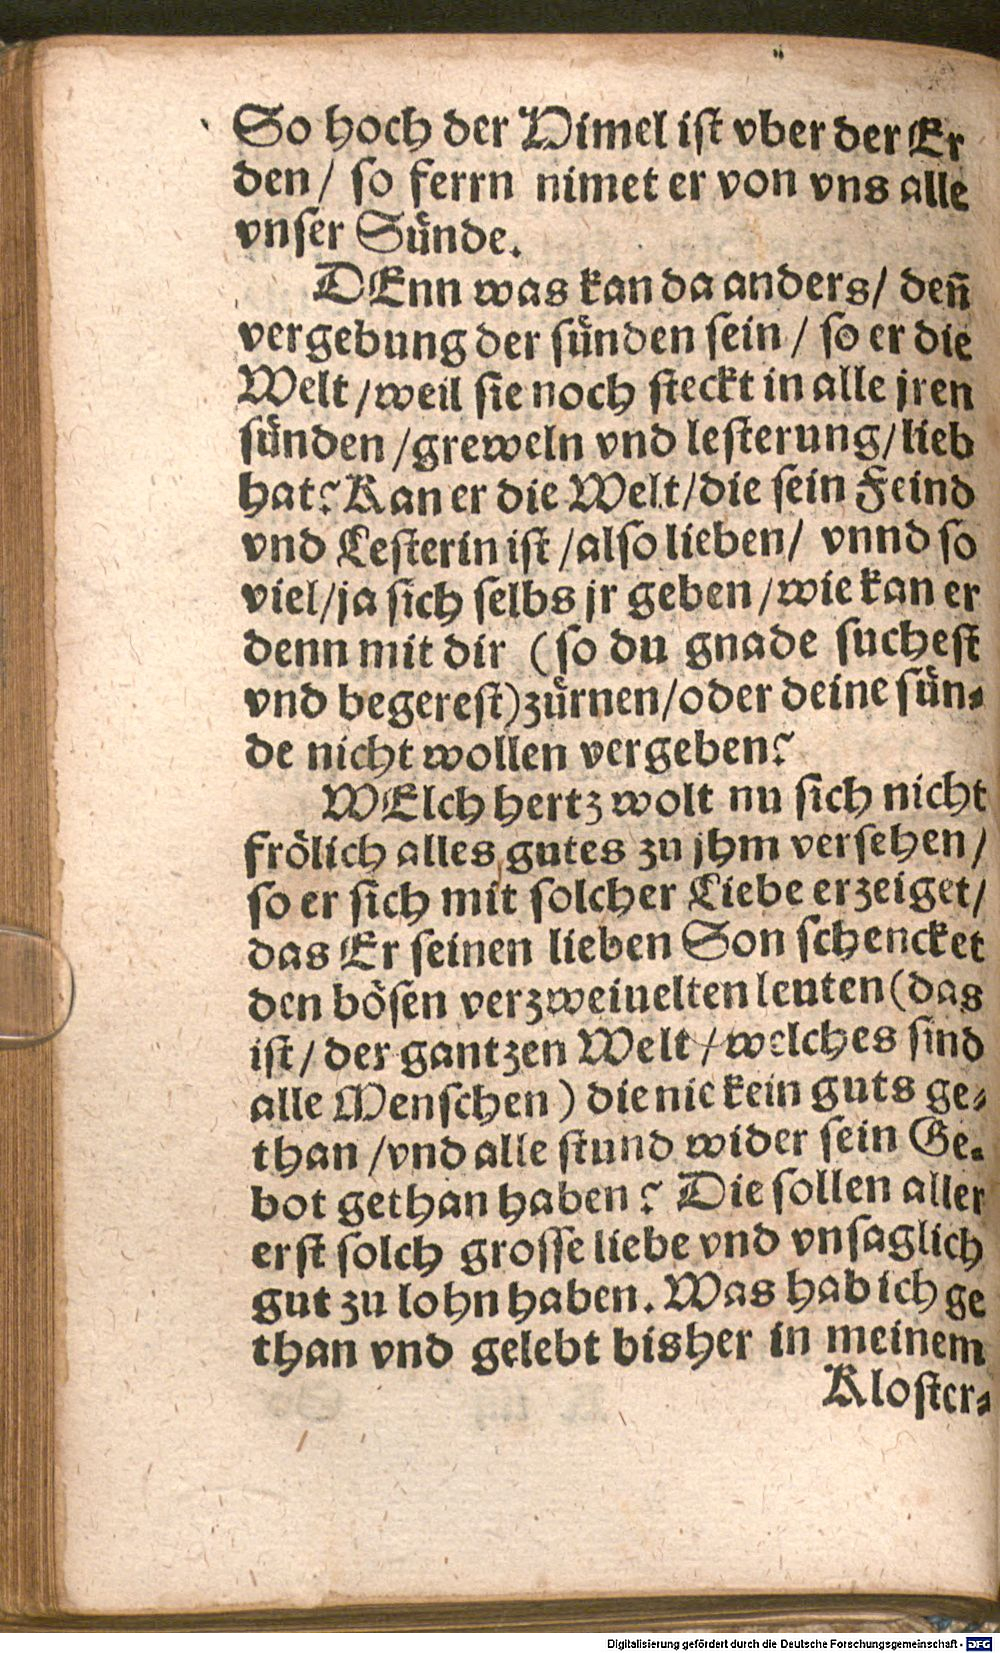 So hoch der Himel ist vber der Er
den / so ferrn nimet er von vns alle
vnser Sünde.
DEnn was kan da anders / deñ
vergebung der sünden sein / so er die
Welt / weil sie noch steckt in alle jren
sünden / greweln vnd lesterung / lieb
hat? Kan er die Welt / die sein Feind
vnd Lesterin ist / also lieben / vnnd so
viel / ja sich selbs jr geben / wie kan er
denn mit dir (so du gnade suchest
vnd begerest) zürnen / oder deine sün-
de nicht wollen vergeben?
WElch hertz wolt nu sich nicht
frölich alles gutes zu jhm versehen /
so er sich mit solcher Liebe erzeiget /
das Er seinen lieben Son schencket
den bösen verzweiuelten leuten (das
ist / der gantzen Welt / welches sind
alle Menschen) die nie kein guts ge-
than / vnd alle stund wider sein Ge-
bot gethan haben? Die sollen aller
erst solch grosse liebe vnd vnsaglich
gut zu lohn haben. Was hab ich ge
than vnd gelebt bisher in meinem
Kloster-
Digitalisierung gefördert durch die Deutsche Forschungsgemeinschaft - DFG